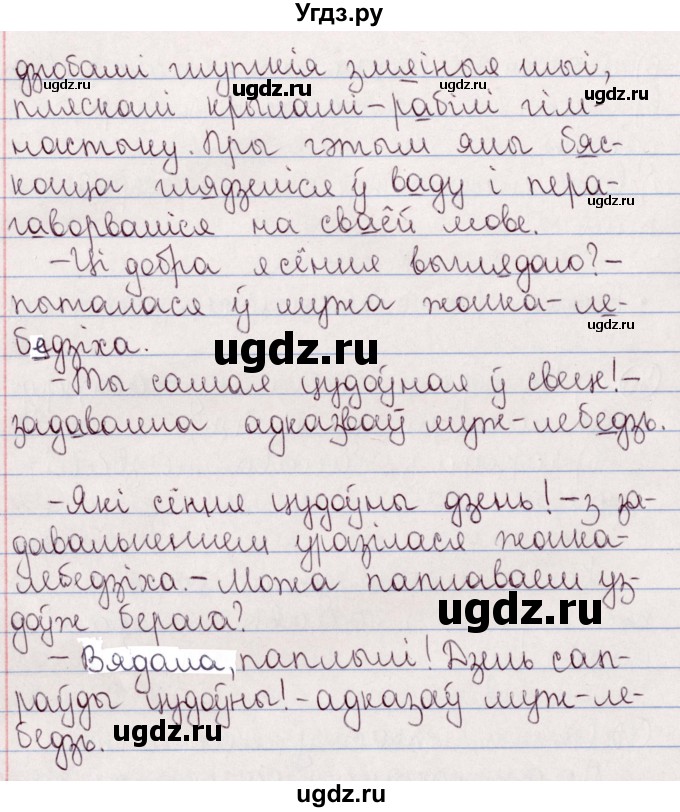 Угдз.ру
дзюбамі шупкія змяіныя шыі,
пляскалі крыламі – рабілі гім-
настыку. Пры гэтым яны бяс-
конца глядзеліся ў ваду і пера-
гаворваліся на сваёй мове.
– Ці добра я сёння выглядаю? –
пыталася ў мужа жонка-ле-
бедзіха.
– Ты самая цудоўная ў свеце! –
задаволена адказваў муж-лебедзь.
– Які сёння цудоўны дзень! – з за-
давальненнем уразілася жонка-
лебедзіха. – Можа паплаваем уз-
доўж берага?
– Вядома, паплылі! Дзень сап-
раўды цудоўны! – адказаў муж-ле-
бедзь.
ugdz.ru
ugdz.ru
ugdz.ru
ugdz.ru
ugdz.ru
ugdz.ru
ugdz.ru
ugdz.ru
ugdz.ru
ugdz.ru
ugdz.ru
ugdz.ru
ugdz.ru
Угдз.ру